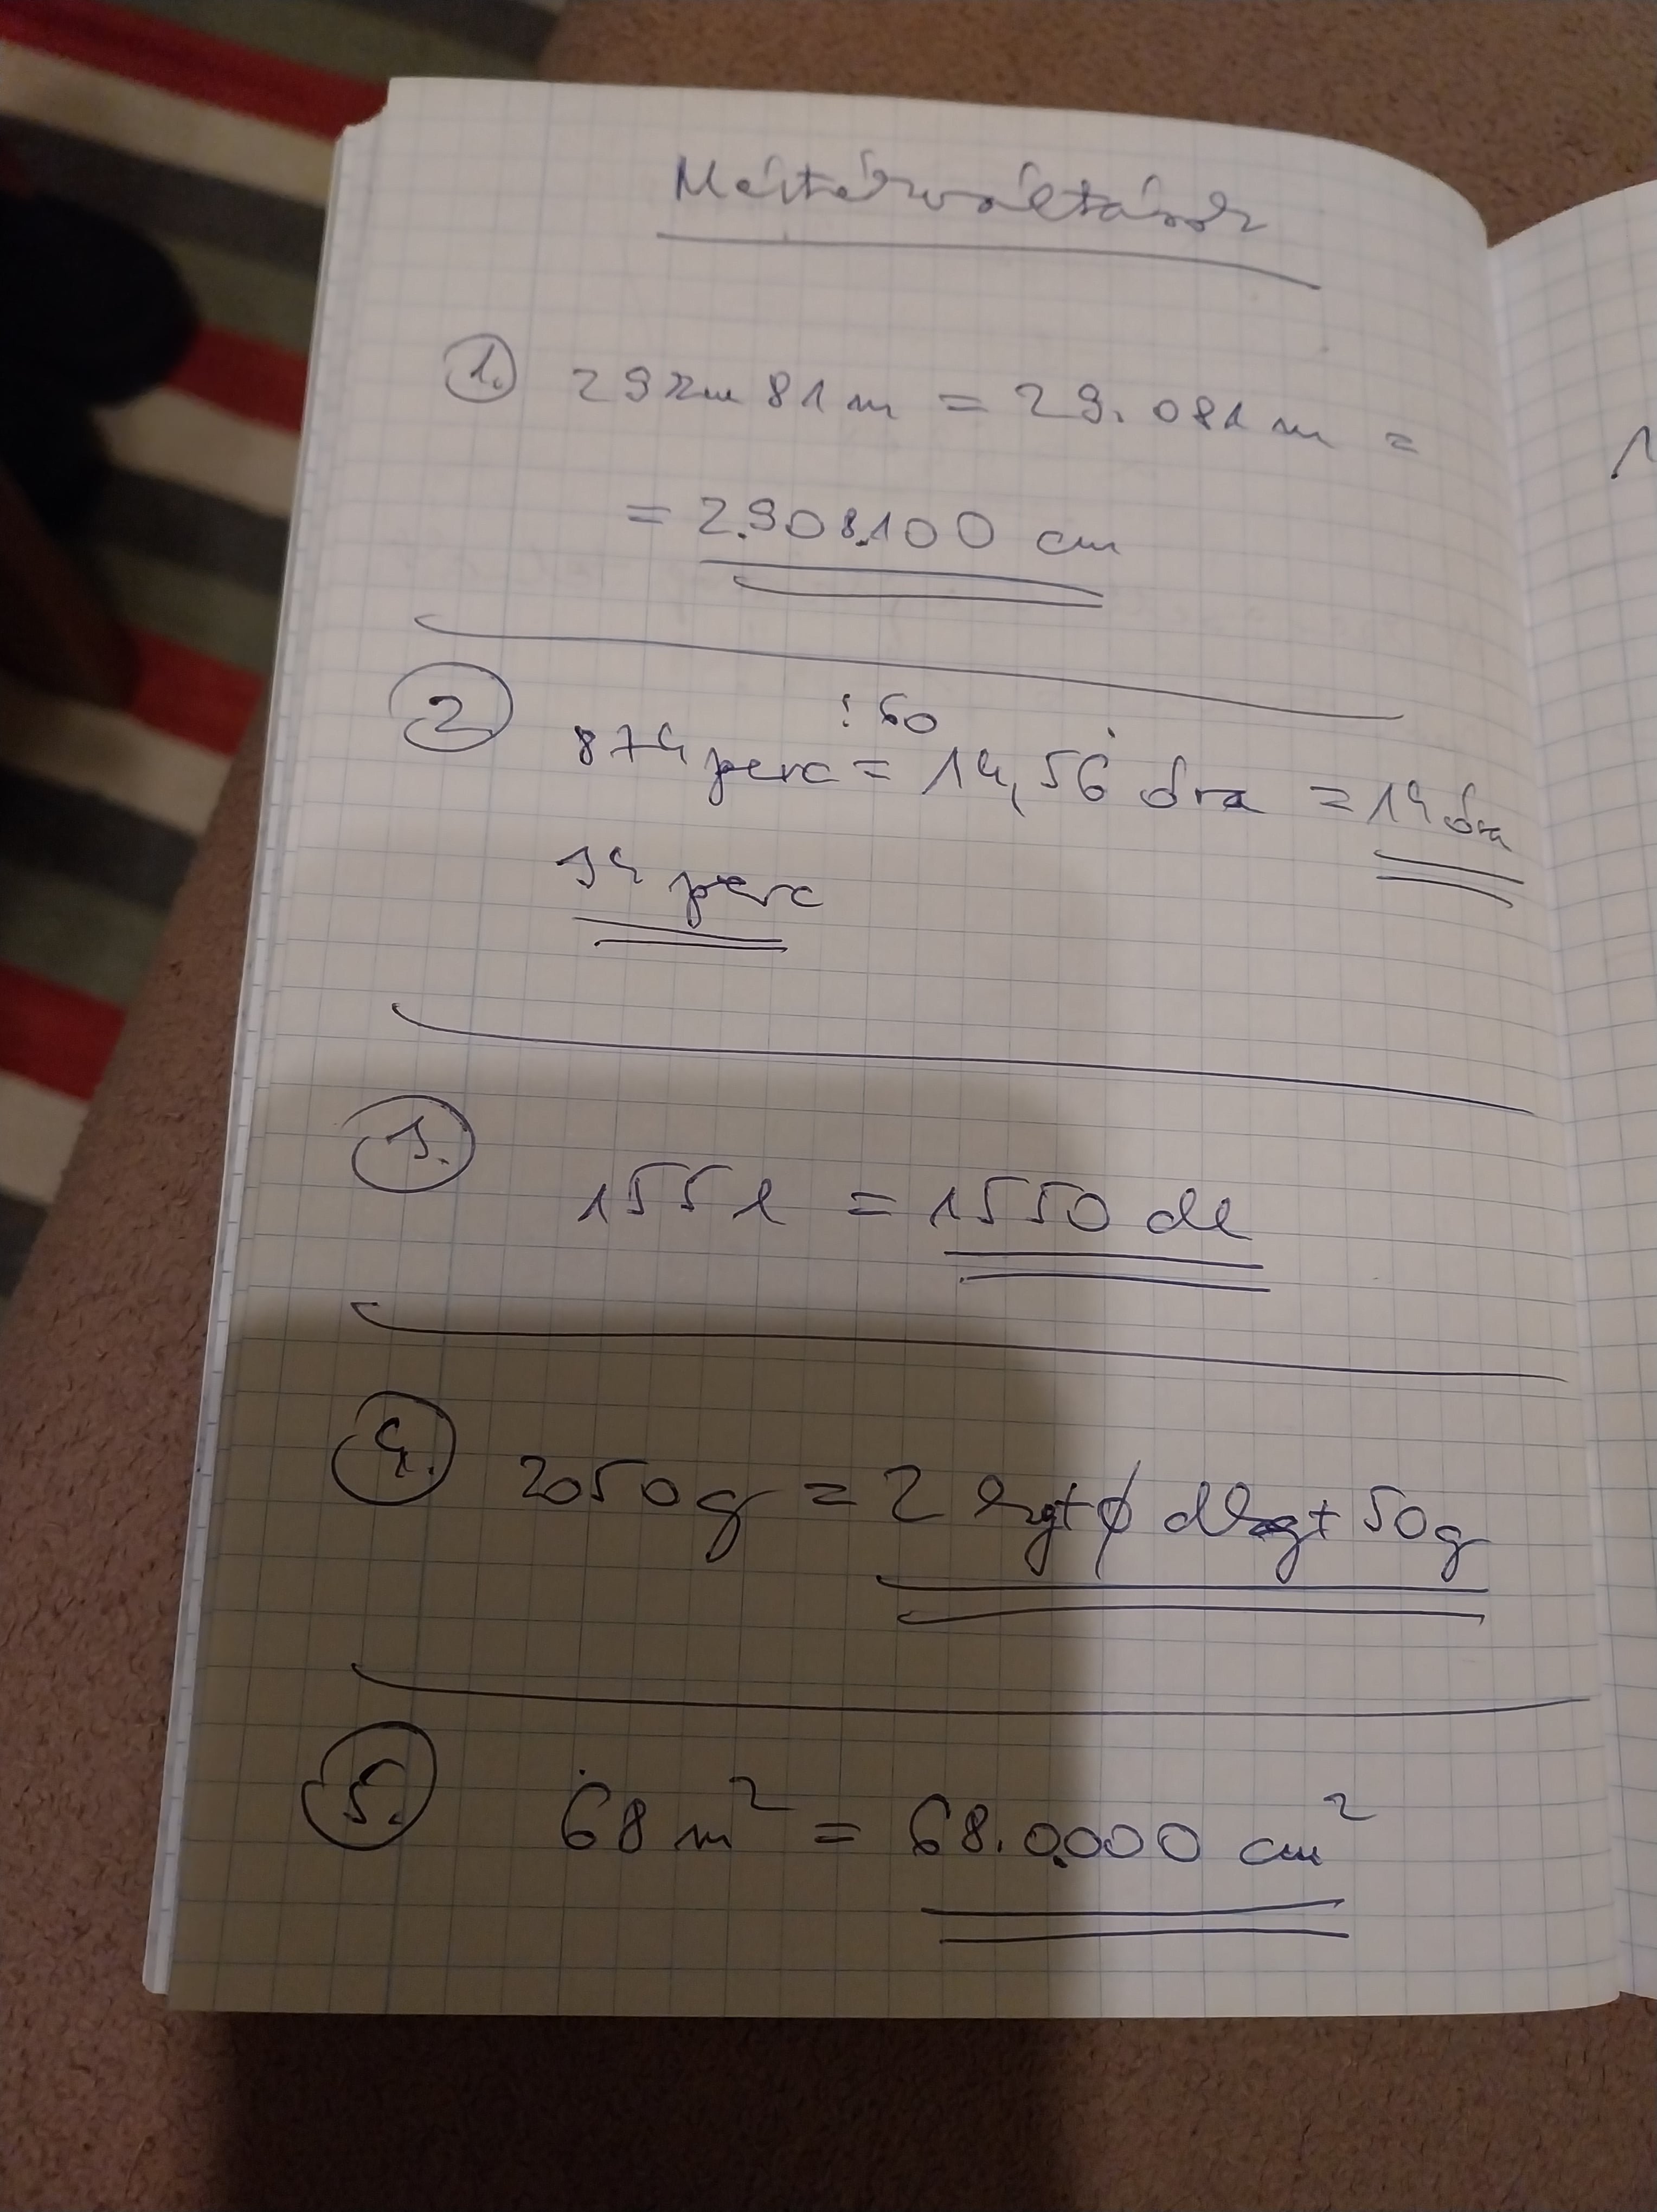 Mértékváltások
1. 29km 81m = 29.081m =
= 2.908.100 cm
2 874 perc = :60 14,56̇ óra = 14 óra
34 perc
3. 155l = 1550 dl
4. 2050g = 2 kg + ϕ dkg + 50g
5. 68 m² = 68.0.000 cm²